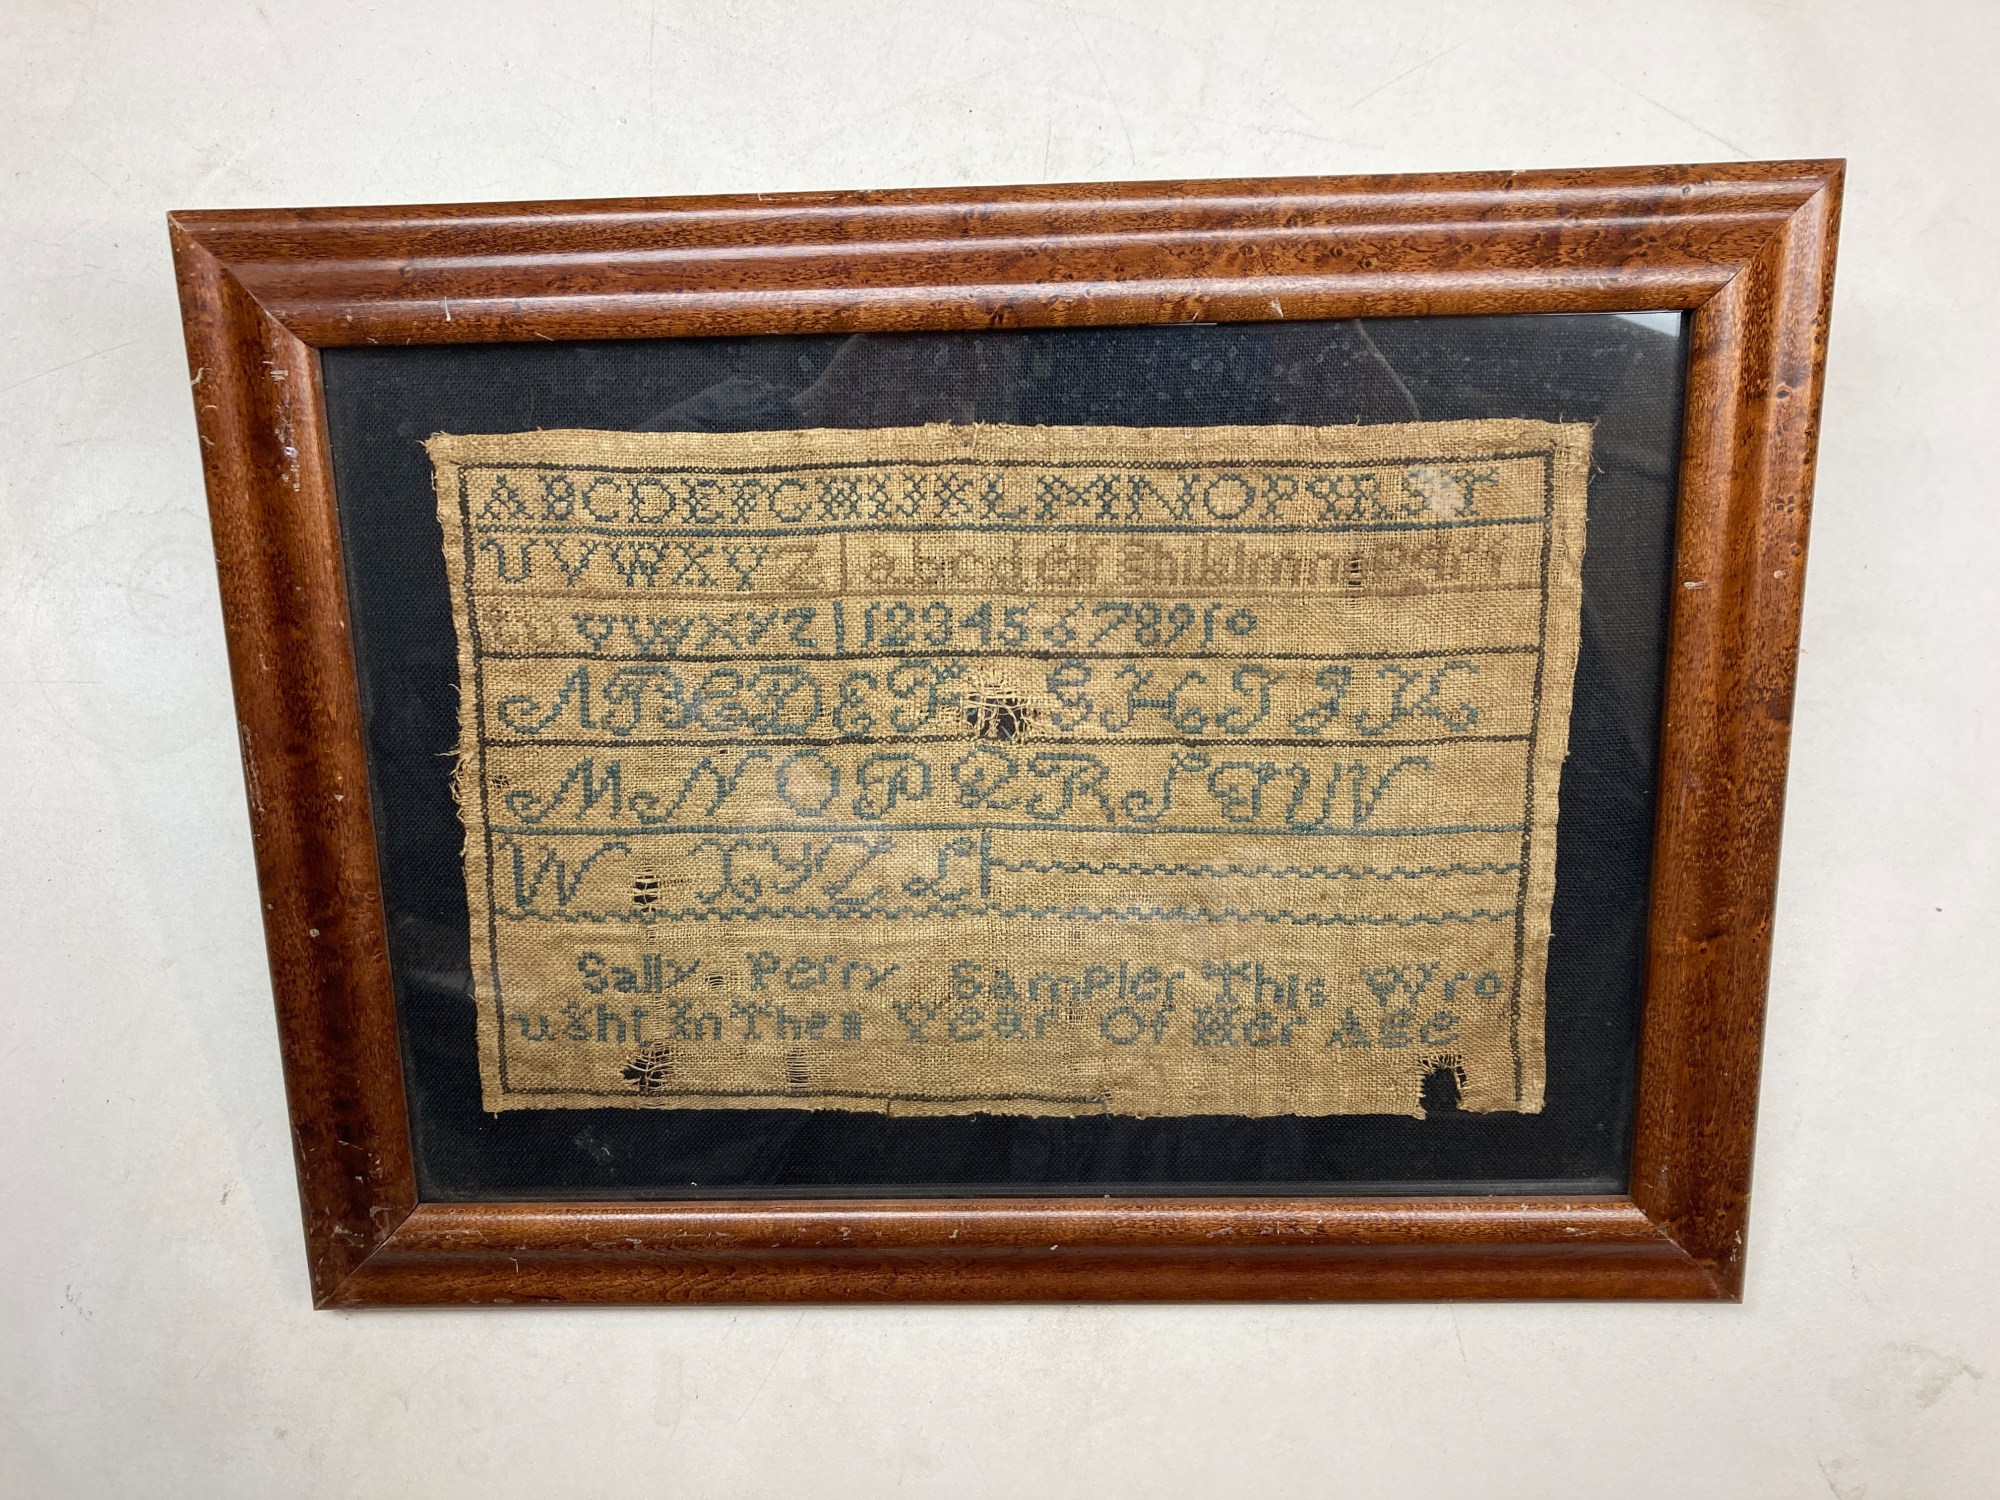 ABCDEFGHIJKLMNOPQRST
UVWXYZ abcdefghiklmnopqrſſ
tu vwxyz 12345678910
ABCDEFGHIJK
MNOPQRSTUV
W XYZ L
Sally Perry Sampler This Wro
ught In The 11 Year Of Her Age